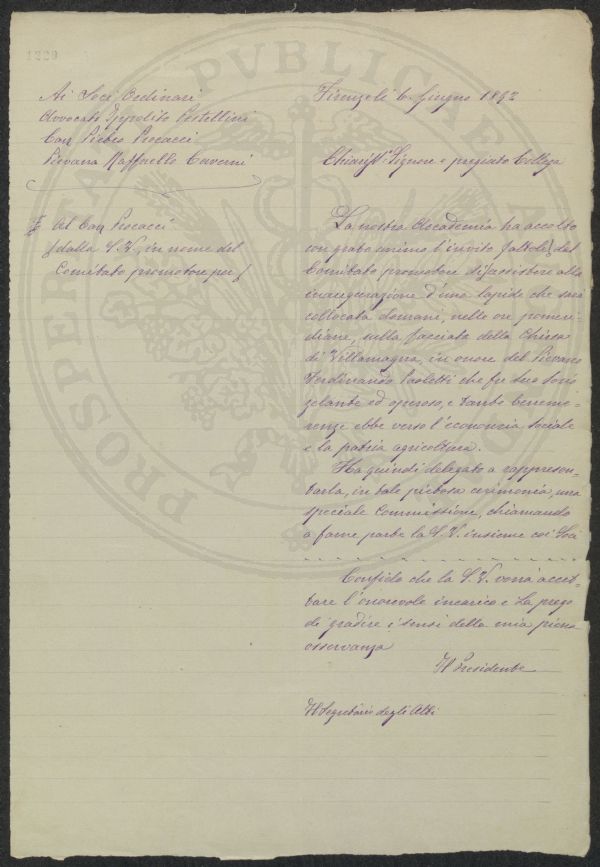 1229
Ai Soci Ordinari
Avvocato Ippolito Pestellini
Cav Pietro Procacci
Pievano Raffaello Caverni
Al Cav Procacci
(dalla S. V. in nome del
Comitato promotore per)
Firenze li 6. Giugno 1892
Chiariss.º Signore e pregiato Collega
La nostra Accademia ha accolto
con grato animo l'invito fattole dal
Comitato promotore di assistere alla
inaugurazione d'una lapide che sarà
collocata domani, nelle ore pomeri-
diane, sulla facciata della Chiesa
di Villamagna, in onore del Pievano
Ferdinando Paoletti che fu suo socio
zelante ed operoso, e tante beneme-
renze ebbe verso l'economia sociale
e la patria agricoltura.
Ha quindi delegato a rappresen-
tarla, in tale pietosa cerimonia, una
speciale Commissione, chiamando
a farne parte la S. V. insieme coi Soci
Confido che la S. V. vorrà accet-
tare l'onorevole incarico e La prego
di gradire i sensi della mia piena
osservanza
Il Presidente
Il Segretario degli Atti
PROSPERITATI PVBLICAE